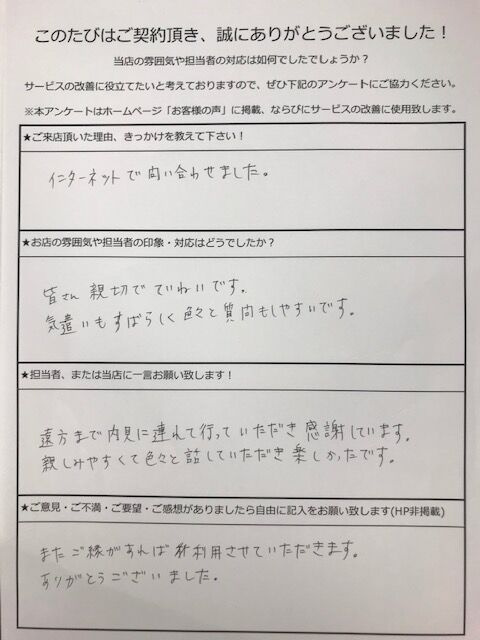 このたびはご契約頂き、誠にありがとうございました！
当店の雰囲気や担当者の対応は如何でしたでしょうか？
サービスの改善に役立てたいと考えておりますので、ぜひ下記のアンケートにご協力ください。
※本アンケートはホームページ「お客様の声」に掲載、ならびにサービスの改善に使用致します。
★ご来店頂いた理由、きっかけを教えて下さい！
インターネットで問い合わせました。
★お店の雰囲気や担当者の印象・対応はどうでしたか？
皆さん親切でていねいです。
気遣いもすばらしく色々と質問もしやすいです。
★担当者、または当店に一言お願い致します！
遠方まで内見に連れて行っていただき感謝しています。
親しみやすくて色々と話していただき楽しかったです。
★ご意見・ご不満・ご要望・ご感想がありましたら自由に記入をお願い致します(HP非掲載)
またご縁があれば 利用させていただきます。
ありがとうございました。